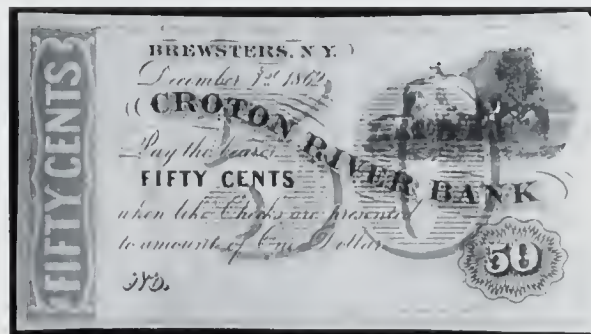 FIFTY CENTS
BREWSTERS, N.Y.
December 1st 1862
CROTON RIVER BANK
Pay the bearer
FIFTY CENTS
when like Checks are presented
to amount of One Dollar
No.
50
50